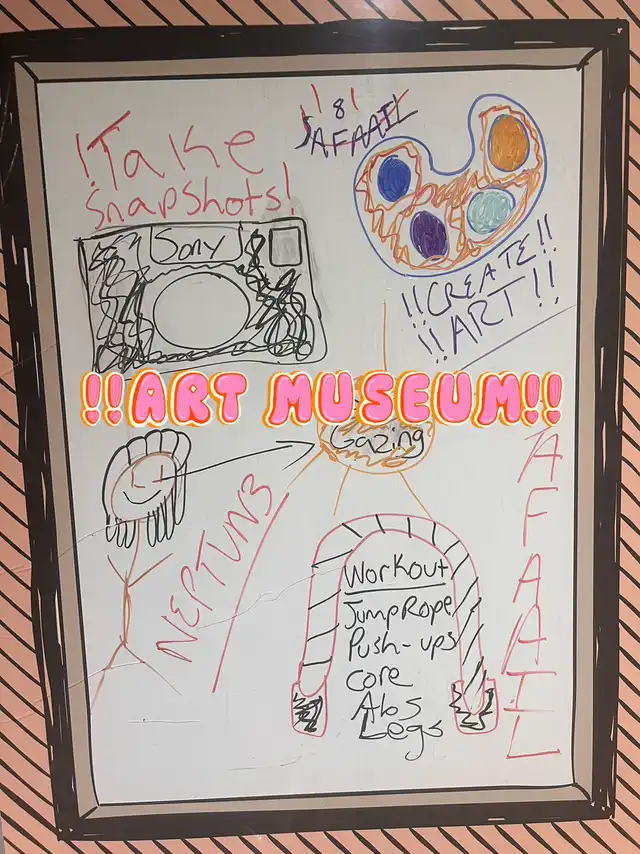 !Take
Snapshots!
Sony
! 8 !
SAFAAIL
!!CREATE!!
!!ART!!
!!ART MUSEUM!!
Gazing
NEPTUN3
AFAAIL
Workout
Jump Rope
Push-ups
Core
Abs
Legs